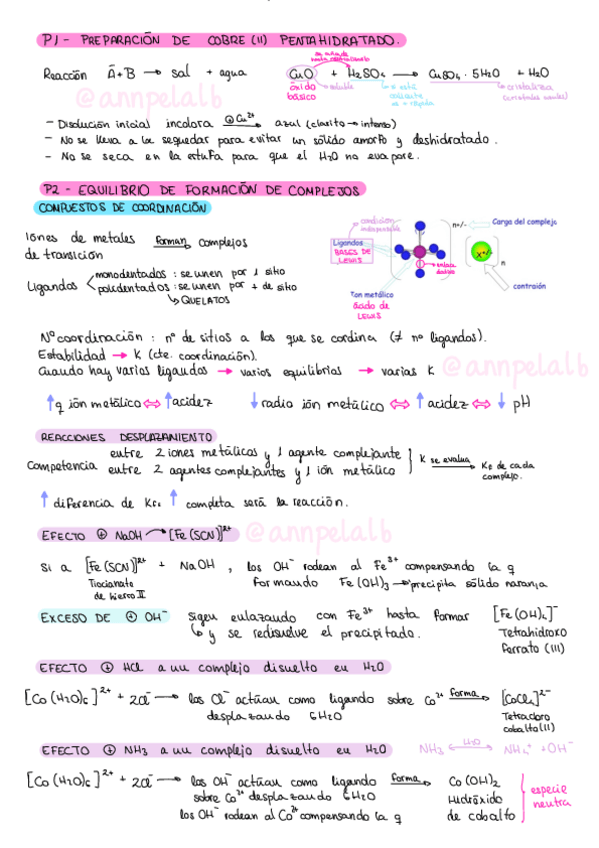 P1 - PREPARACIÓN DE COBRE (II) PENTAHIDRATADO.
Reacción A + B → sal + agua
CuO + H₂SO₄ → CuSO₄ · 5H₂O + H₂O
óxido básico
soluble
cristaliza
@annpelalb
- Disolución inicial incolora ⊕ Cu²⁺ → azul (clarito → intenso)
- No se lleva a la sequedar para evitar un sólido amorfo y deshidratado.
- No se seca en la estufa para que el H₂O no evapore.
P2 - EQUILIBRIO DE FORMACIÓN DE COMPLEJOS
COMPUESTOS DE COORDINACIÓN
Iones de metales forman → complejos
de transición
Ligandos
monodentados : se unen por 1 sitio
polidentados : se unen por + de sitio
↳ QUELATOS
condición indispensable
Ligandos
BASES DE LEWIS
n+/-
Carga del complejo
enlace dativo
X+/-
n
contraión
Ion metálico
ácido de LEWIS
Nº coordinación : nº de sitios a los que se cordina (≠ nº ligandos).
Estabilidad → K (cte. coordinación).
Cuando hay varios ligandos → varios equilibrios → varias K
@annpelalb
↑ q ión metálico ⇔ ↑ acidez
↓ radio ión metálico ⇔ ↑ acidez ⇔ ↓ pH
REACCIONES DESPLAZAMIENTO
Competencia
entre 2 iones metálicos y 1 agente complejante
entre 2 agentes complejantes y 1 ión metálico
K se evalua → Kf de cada complejo.
↑ diferencia de Kf, ↑ completa será la reacción.
EFECTO ⊕ NaOH → [Fe(SCN)]²⁺
@annpelalb
Si a [Fe(SCN)]²⁺ + NaOH, los OH⁻ rodean al Fe³⁺ compensando la q
Tiocianato de hierro II
formando Fe(OH)₃ → precipita sólido naranja
EXCESO DE ⊕ OH⁻
siguen enlazando con Fe³⁺ hasta formar [Fe(OH)₄]⁻
↳ y se redisuelve el precipitado.
Tetrahidroxo ferrato (III)
EFECTO ⊕ HCl a un complejo disuelto en H₂O
[Co(H₂O)₆]²⁺ + 2Cl⁻ → los Cl⁻ actúan como ligando sobre Co²⁺ forma → [CoCl₄]²⁻
desplazando 6H₂O
Tetracloro cobalto(II)
EFECTO ⊕ NH₃ a un complejo disuelto en H₂O
NH₃ ⟷ H₂O NH₄⁺ + OH⁻
[Co(H₂O)₆]²⁺ + 2Cl⁻ → los OH⁻ actúan como ligando forma → Co(OH)₂
sobre Co²⁺ desplazando 6H₂O
Hidróxido de cobalto
los OH⁻ rodean al Co²⁺ compensando la q
especie neutra